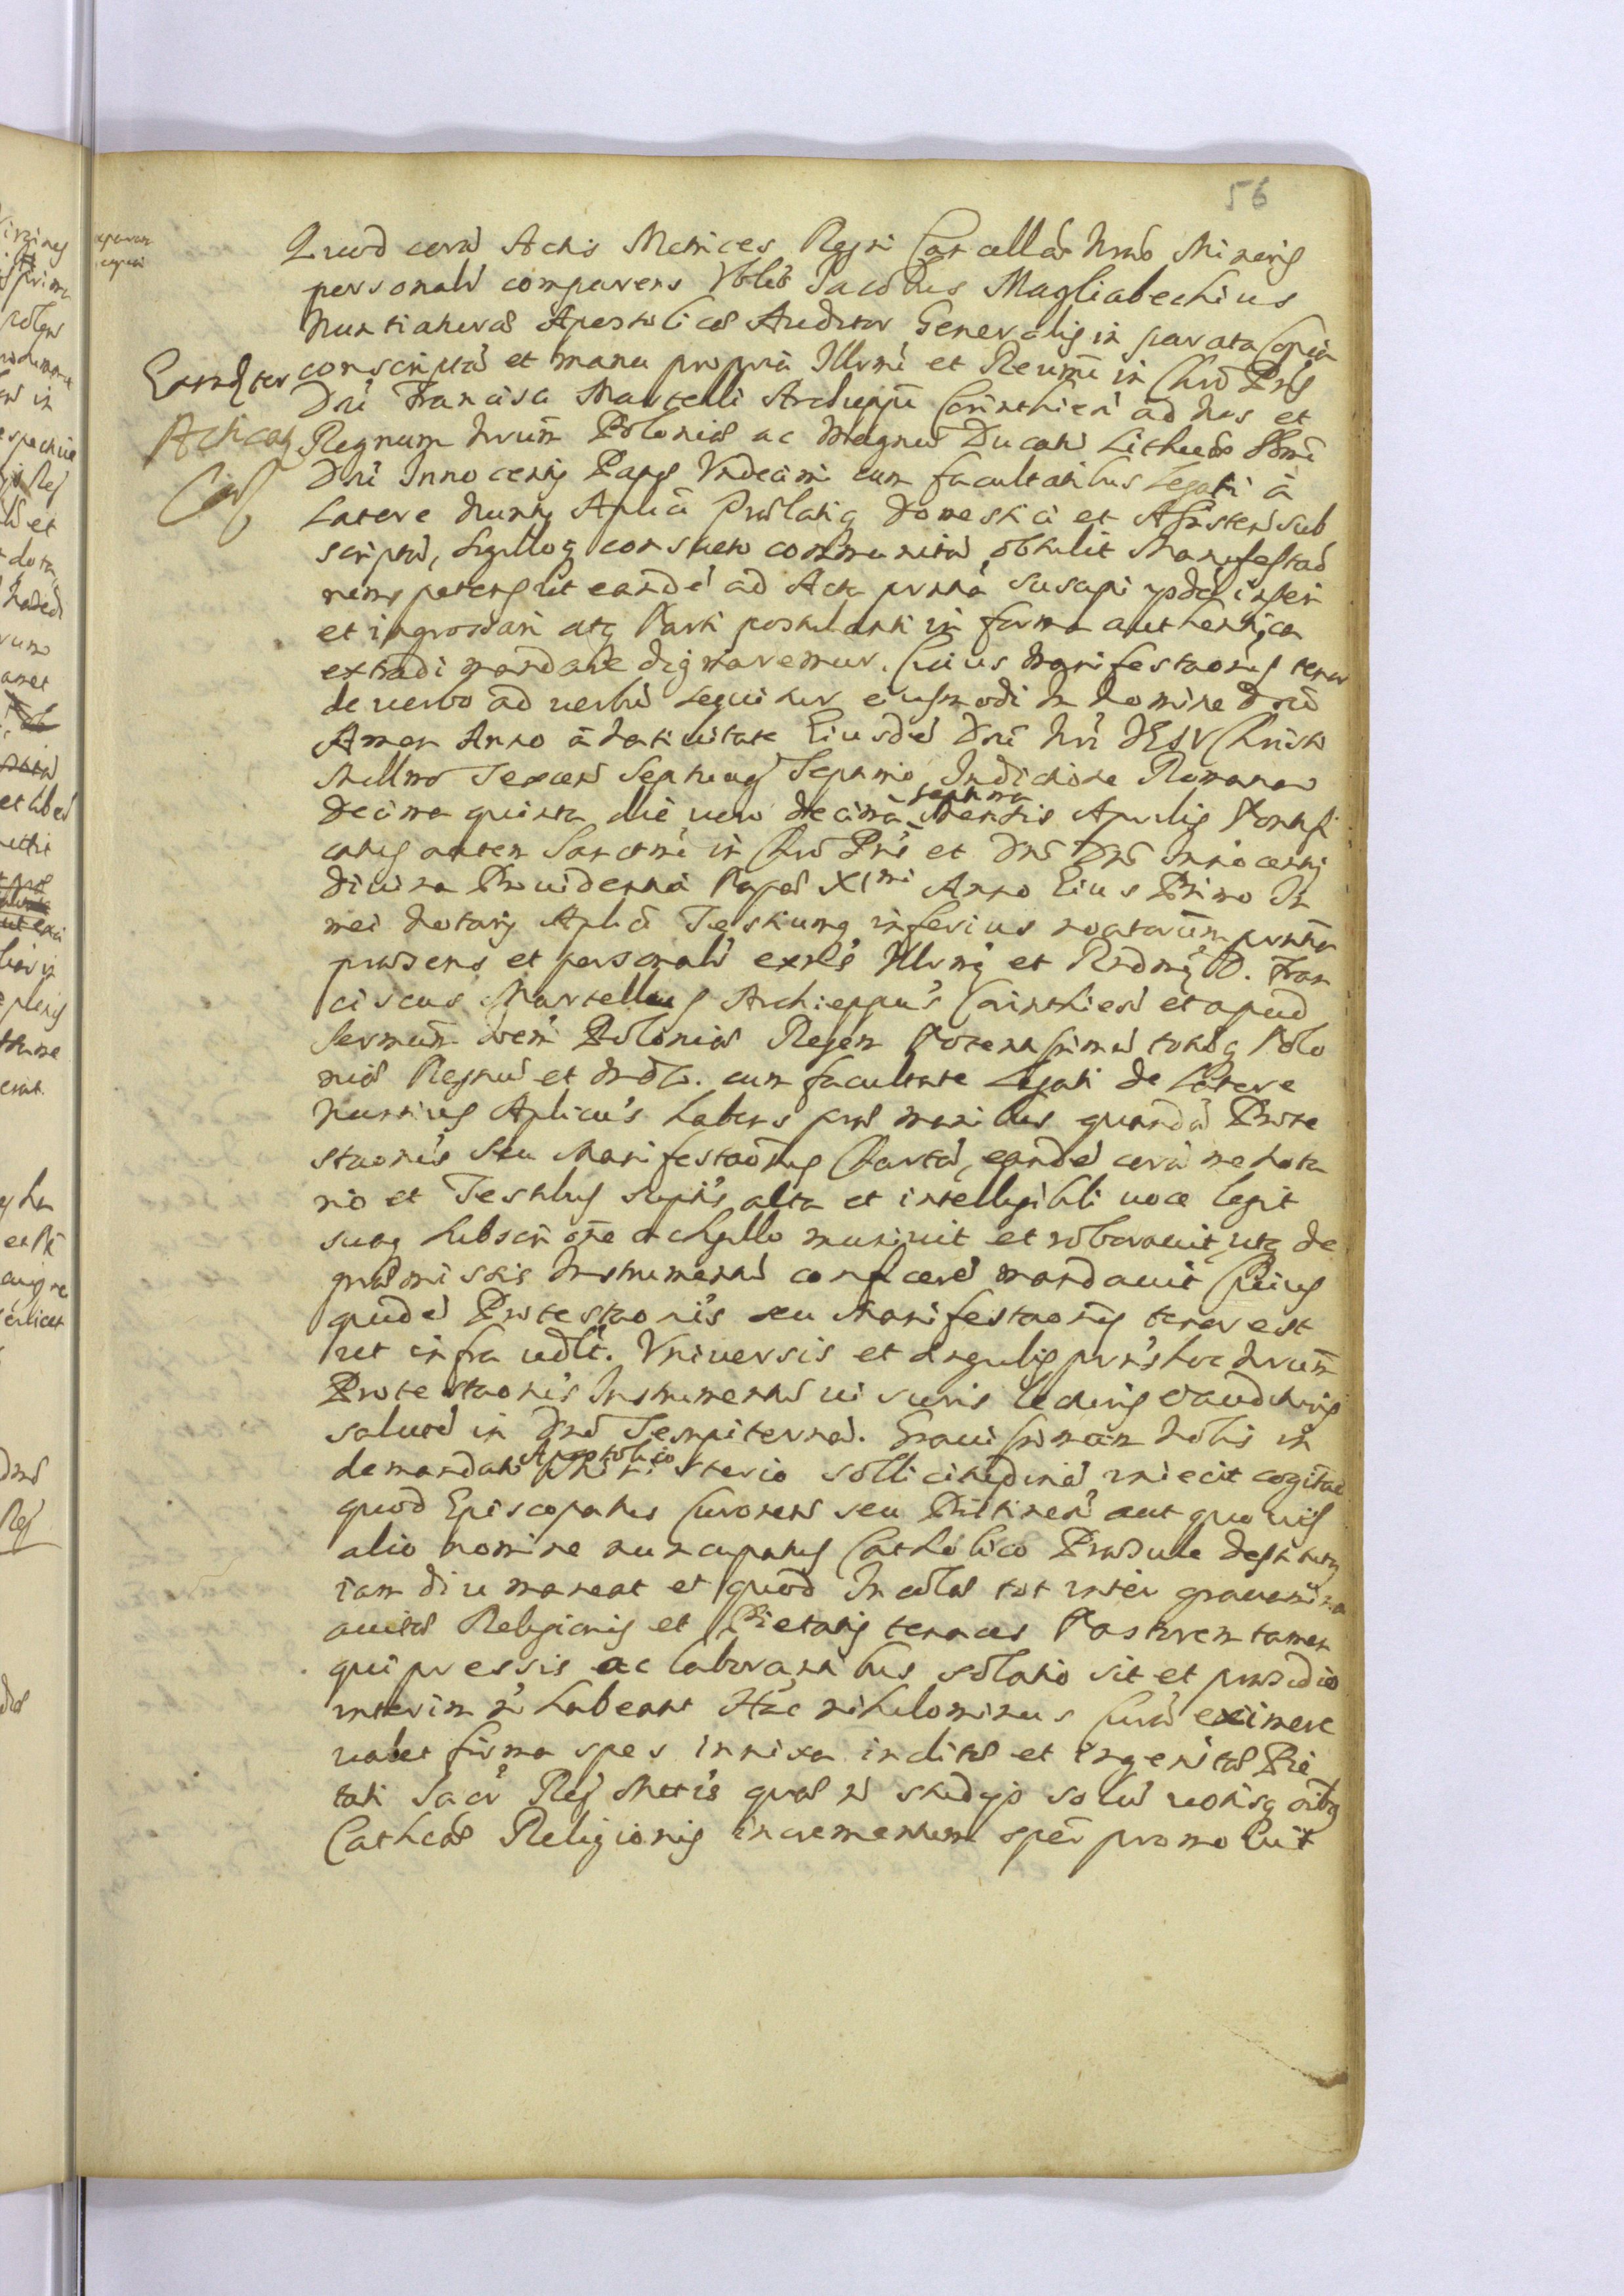 56
Quod corã Actis Metrices Regni Cancellar Nrae Minoris
personalr comparens Nblis Jacobus Magliabechius
Nuntiaturae Apostolicae Auditor Generalis in parata Copia
conscriptã et manu propria Illrmi et Reumi in Chro Pris
Dni Francisci Martelli Archieppi Corinthien ad Nos et
Regnum Nrum Poloniae ac Magnu Ducatu Lithuae Ssmi
Dni Innocentij Papae Vndecimi cum facultatibus Legati à
Latere Nuntij Aplici Praelatiq Domestici et Assisten sub
scriptã, sigilloq consueto communitã obtulit Manifestaõ
nem petens ut eandẽ ad Acta prnta suscipi
et ingrossari atq Parti postulanti in forma authentica
extradi mandare dignaremur. Cuius Manifestaonis tenor
de verbo ad verbũ sequitur eiusmodi In Nomine Dni
Amen Anno à Natiuitate Eiusdẽ Dni Nri JESV Christi
Millmo Sexcen Septuag Septimo, Indictione Romana
Decima quinta die vero decima septima Mensis Aprilis Pontifi
catus autem Sanctmi in Chro Pris et Dni Dni Innocentij
Diuina Prouidentiã Papae XImi Anno Eius Primo In
mei Notarij Aplici Testiumq inferius noatorum prntia
praesens et personalr exns Illrmq et Rndmq D. Fran
ciscus Martellus Archieppus Corinthien et apud
Sermum Poloniae Regem Potentissimu totaq Polo
niae Regnu et MDL. cum facultate Legati de Latere
Nuntius Aplicus habens prae manibus quandã Prote
staonis seu Manifestaonis Chartã, eandẽ corã me Nota
rio et Testibus supris alta et intelligibili uoce legit
suaq subscri one ac sigillo muniuit et roborauit, utq de
praemissis Instrumentũ conficerẽ mandauit Cuius
quidẽ Protestaonis seu Manifestaonis tenor est
ut infra vdlt. Vniuersis et singulis prns hoc Nrum
Protestaonis Instrumentũ visuris lecturis et audituris
salutẽ in Dno Sempiternã. Grauissimam Nobis in
demandati Apostolico Ministerio sollicitudinẽ iniecit cogitao
quod Episcopatus Curonen seu Piltinen aut quouis
alio nomine nuncupatus Catholico Praesule destitutus
iam diu maneat et quod Incolae tot inter grauamina
auitae Religionis et Pietatis tenaces Pastorem tamen
qui pressis ac laborantibus solatio sit et praesidio
interim ñ habeant Hac nihilominus Curã eximere
ualet firma spes innixa inclitae et ingenitae Pie
tati Sacr Reg Mttis quae ñ studijs solũ uotisq
Cathcae Religionis incrementum sper promouit
Acticans